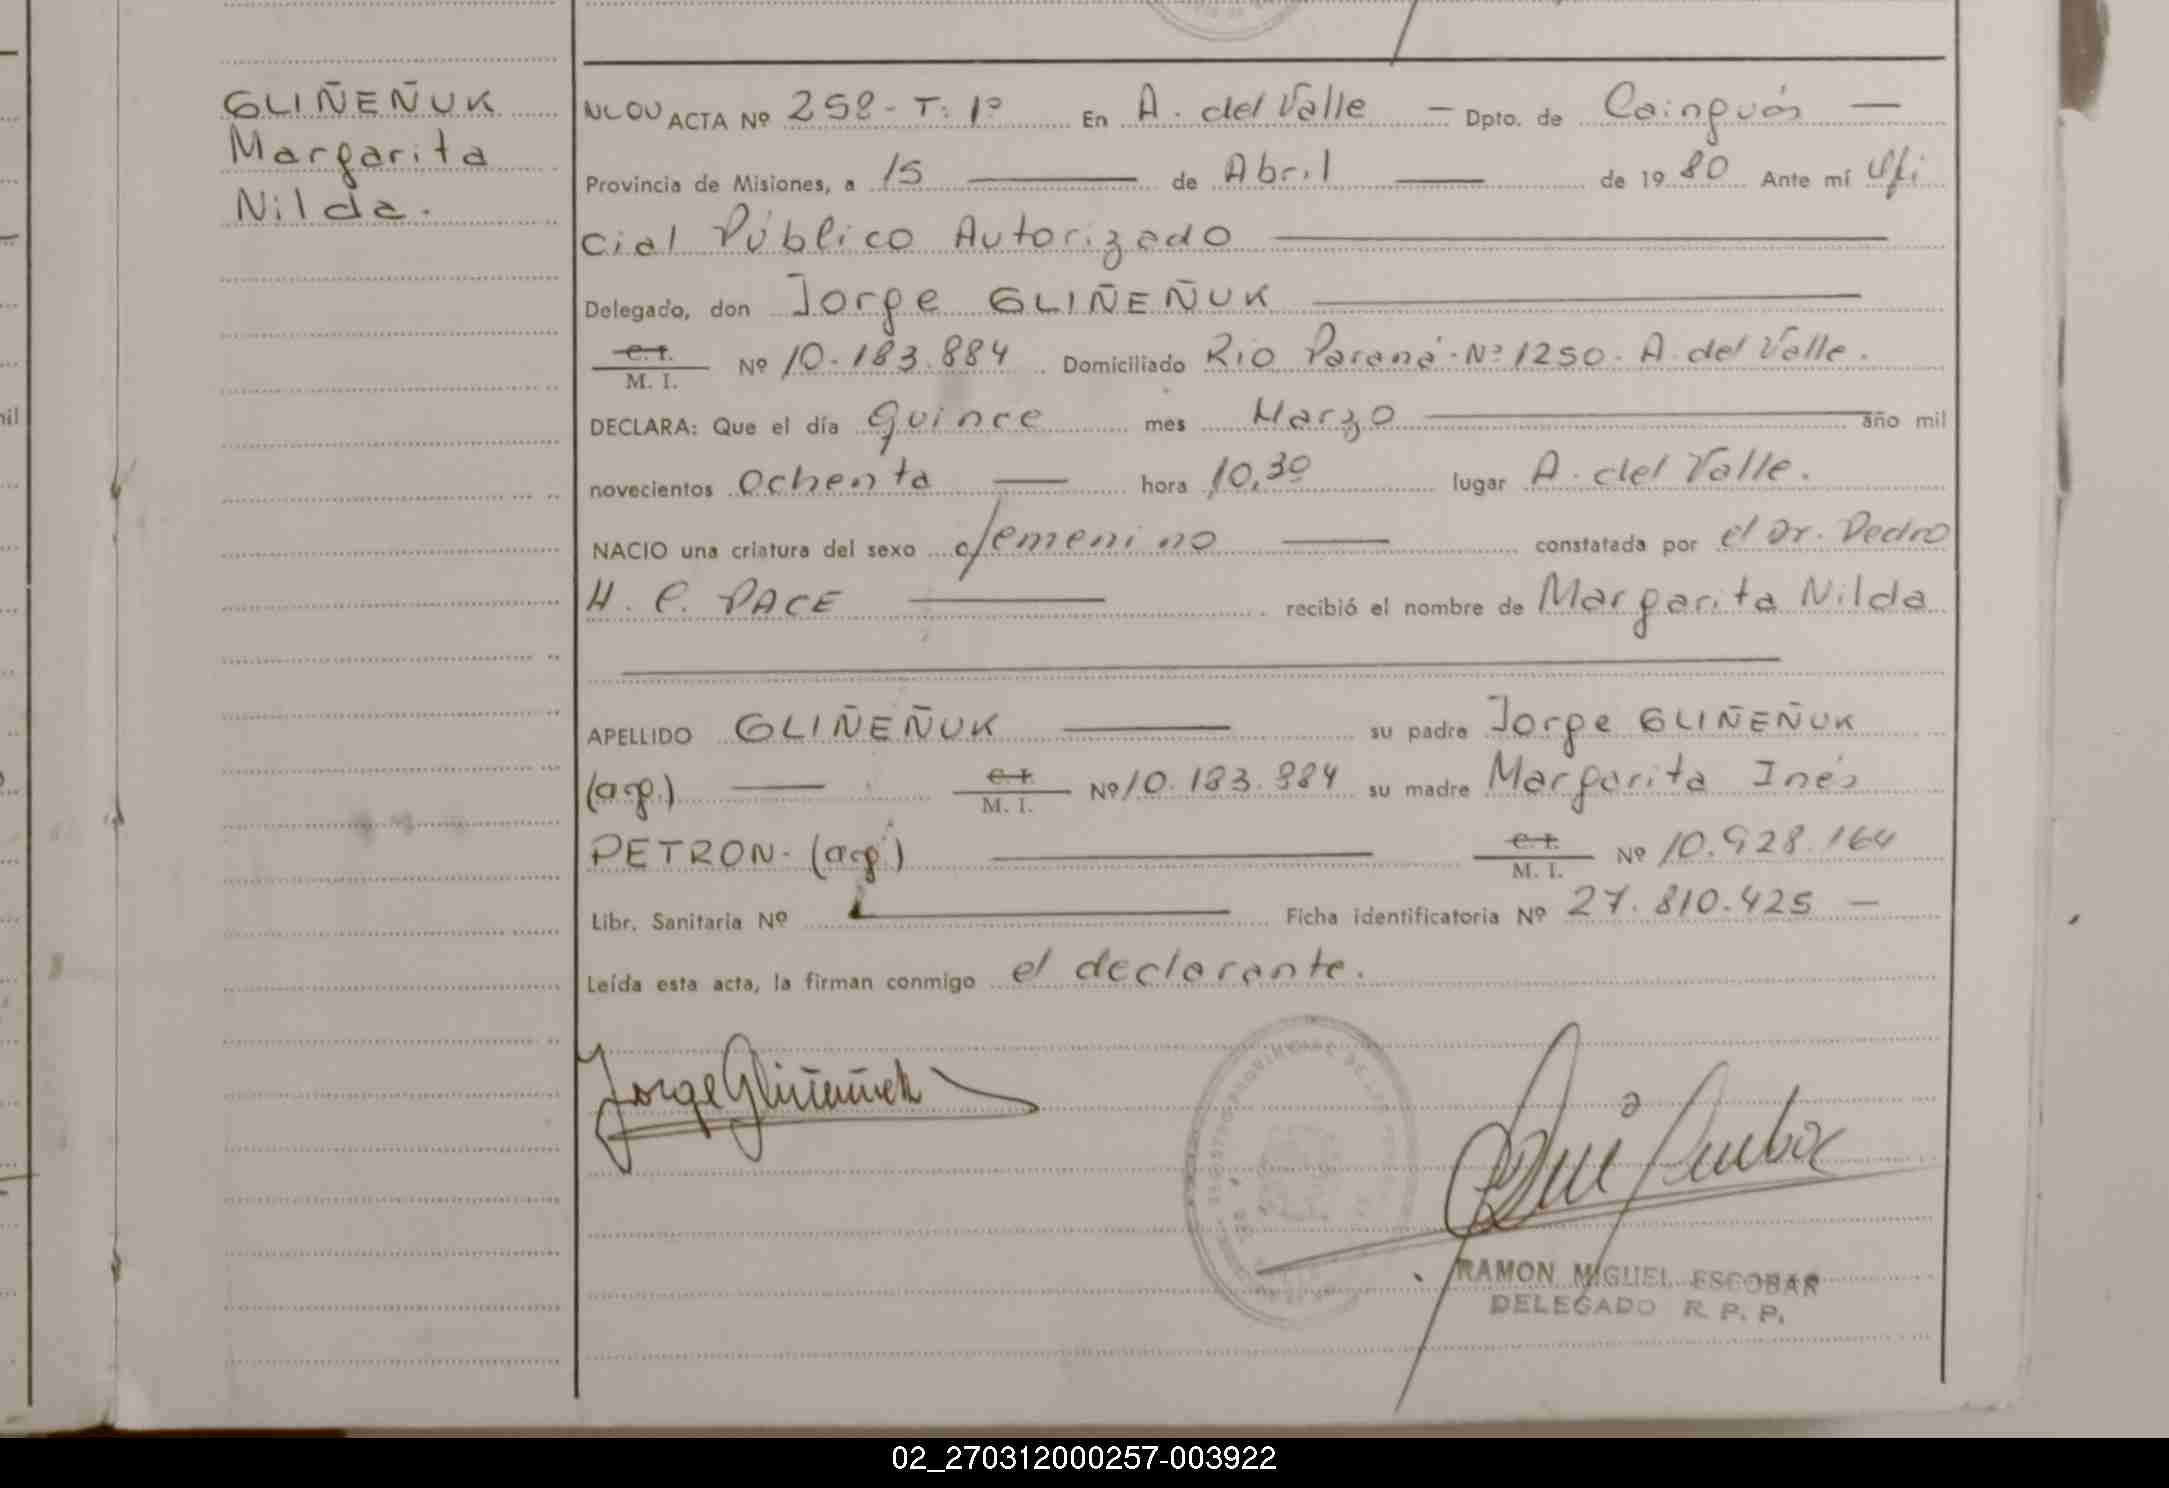 GLIÑEÑUK
Margarita
Nilda.
ACTA Nº 258 - T: 1º En A. del Valle — Dpto. de Cainguás —
Provincia de Misiones, a 15 de Abril de 1980 Ante mí Ofi
cial Público Autorizado
Delegado, don Jorge GLIÑEÑUK
C. I.
M. I. Nº 10.183.884 Domiciliado Rio Paraná - Nº 1250. A. del Valle.
DECLARA: Que el día quince mes Marzo año mil
novecientos ochenta hora 10,30 lugar A. del Valle.
NACIO una criatura del sexo femenino constatada por el Dr. Pedro
H. C. PACE recibió el nombre de Margarita Nilda
APELLIDO GLIÑEÑUK su padre Jorge GLIÑEÑUK
(arg.) C. I.
M. I. Nº 10.183.884 su madre Margarita Inés
PETRON - (arg.) C. I.
M. I. Nº 10.928.164
Libr. Sanitaria Nº Ficha identificatoria Nº 27.810.425 —
Leída esta acta, la firman conmigo el declarante.
Jorge Gliñeñuk
RAMON MIGUEL ESCOBAR
DELEGADO R. P. P.
02_270312000257-003922